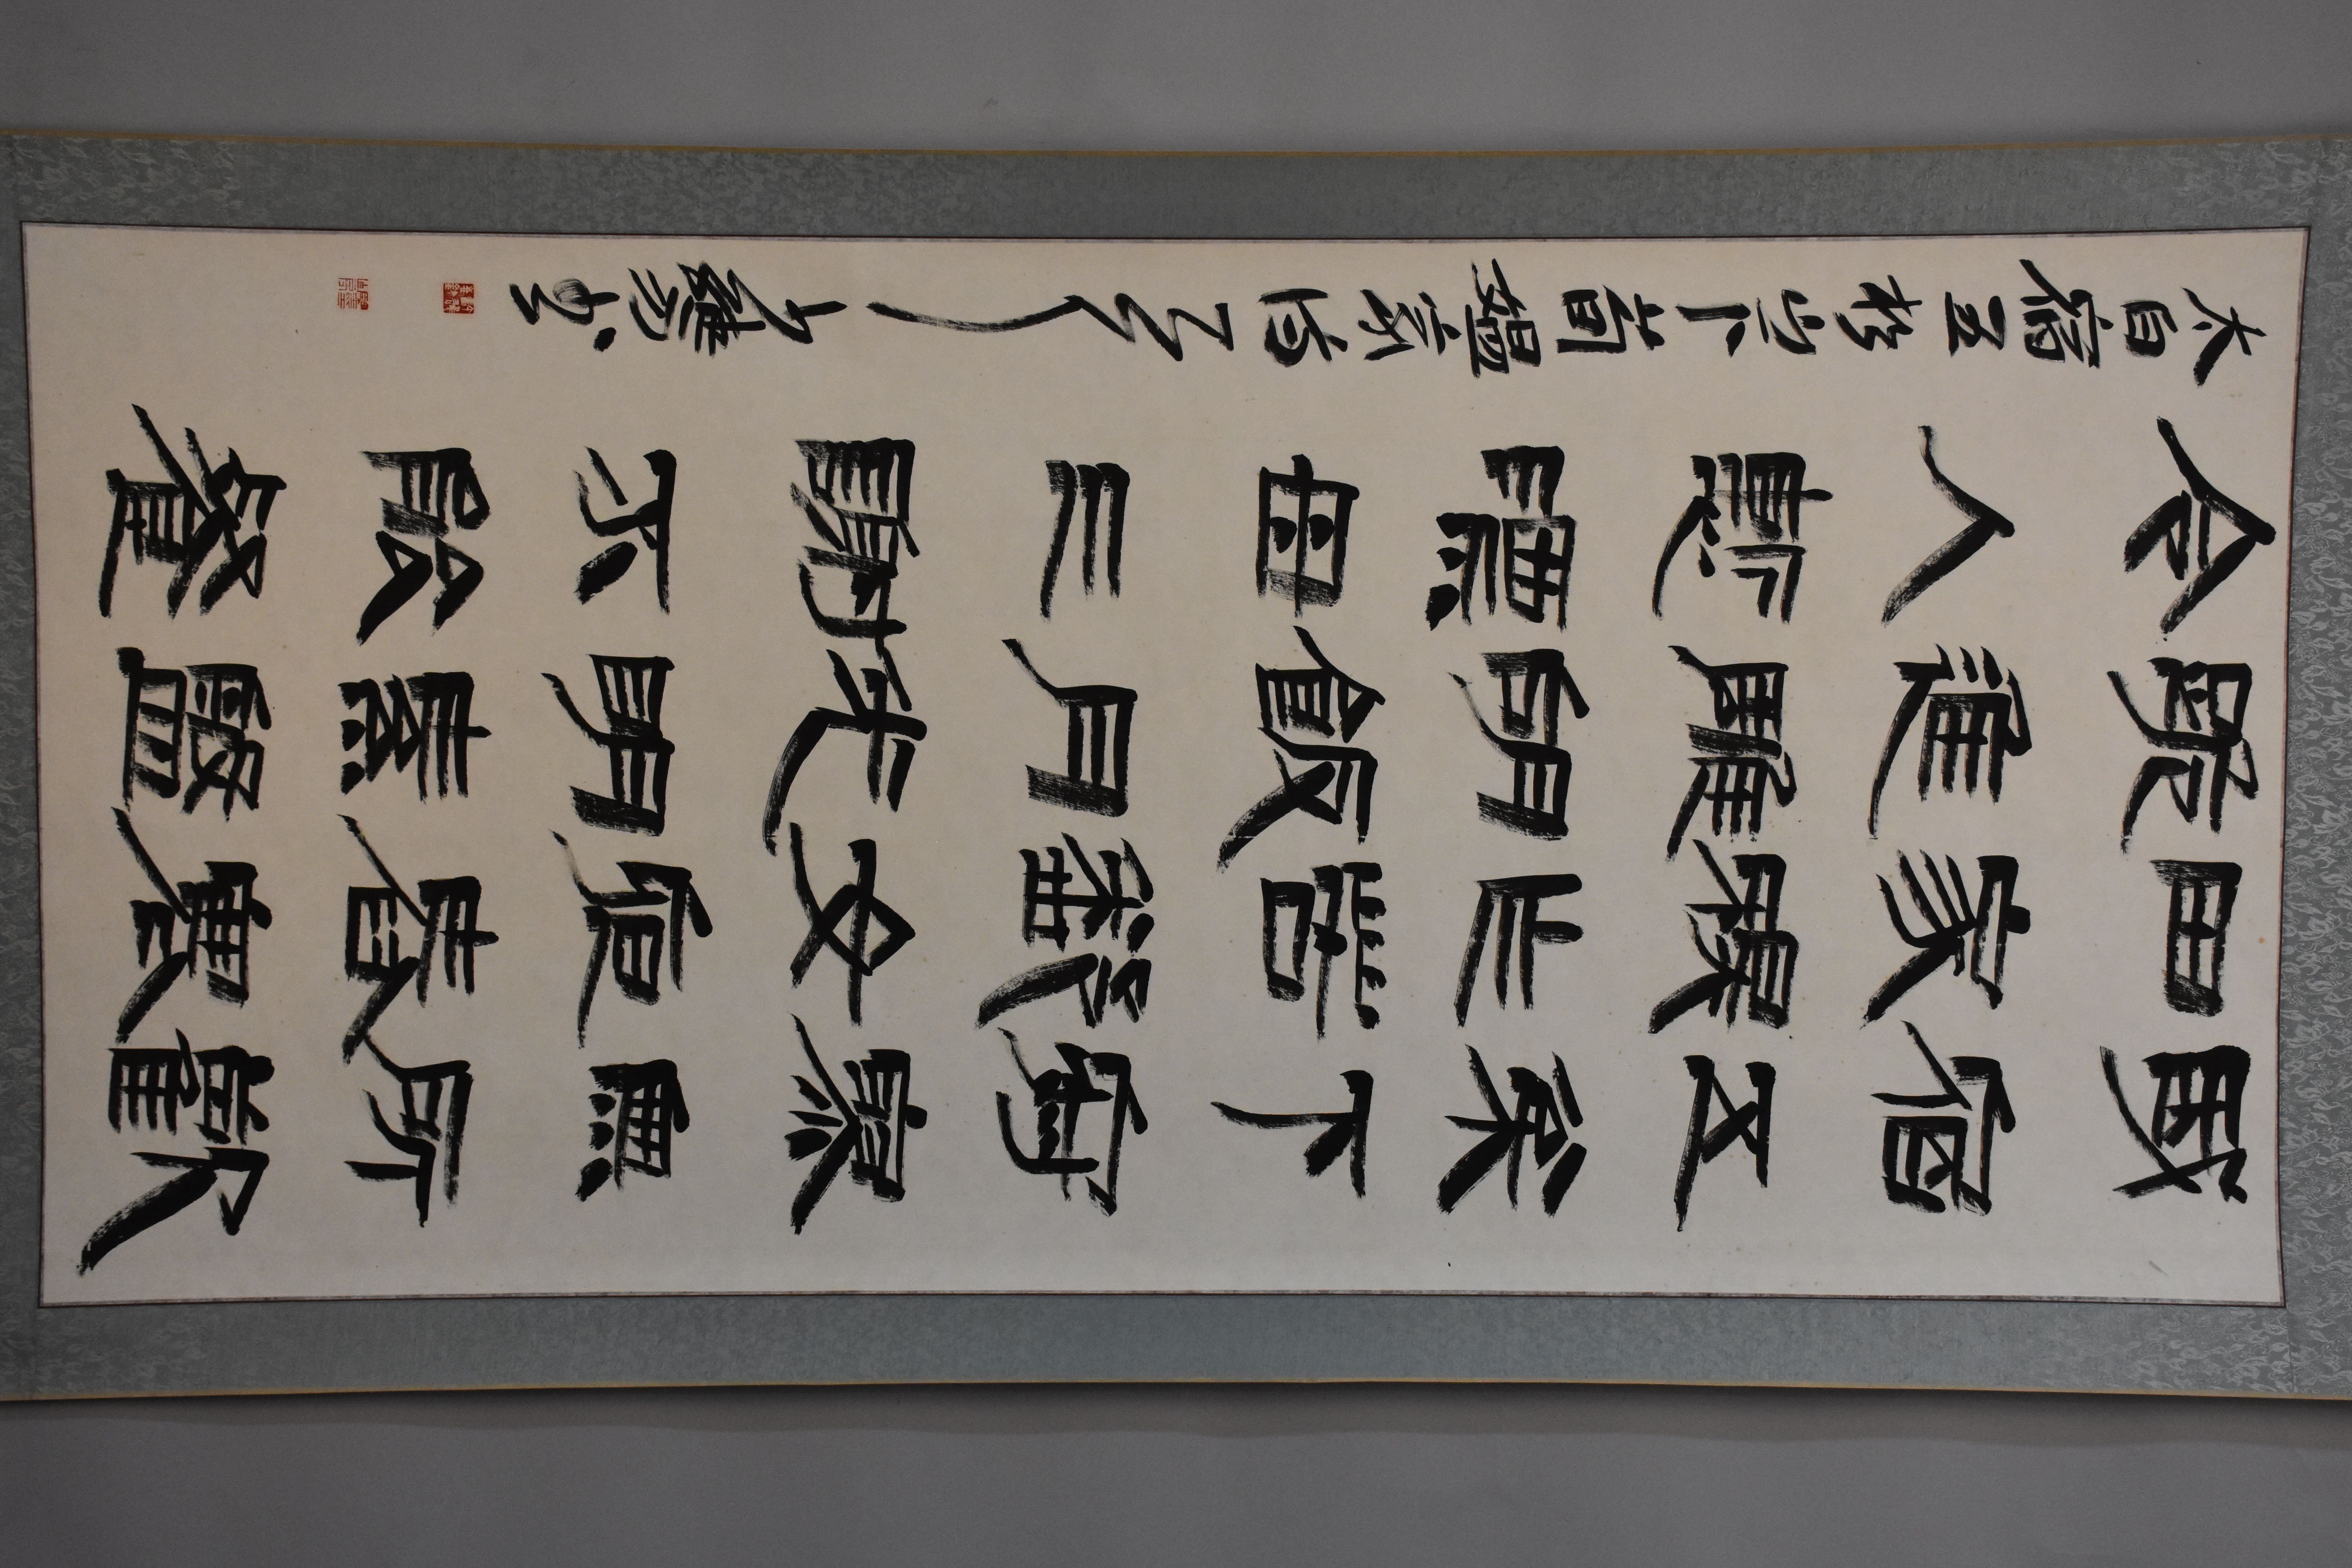 我宿五松下寂寥無所歡
田家秋作苦鄰女夜舂寒
跪進雕胡飯月光明素盤
令人慚漂母三謝不能餐
太白宿五松山下荀媼家詩
書